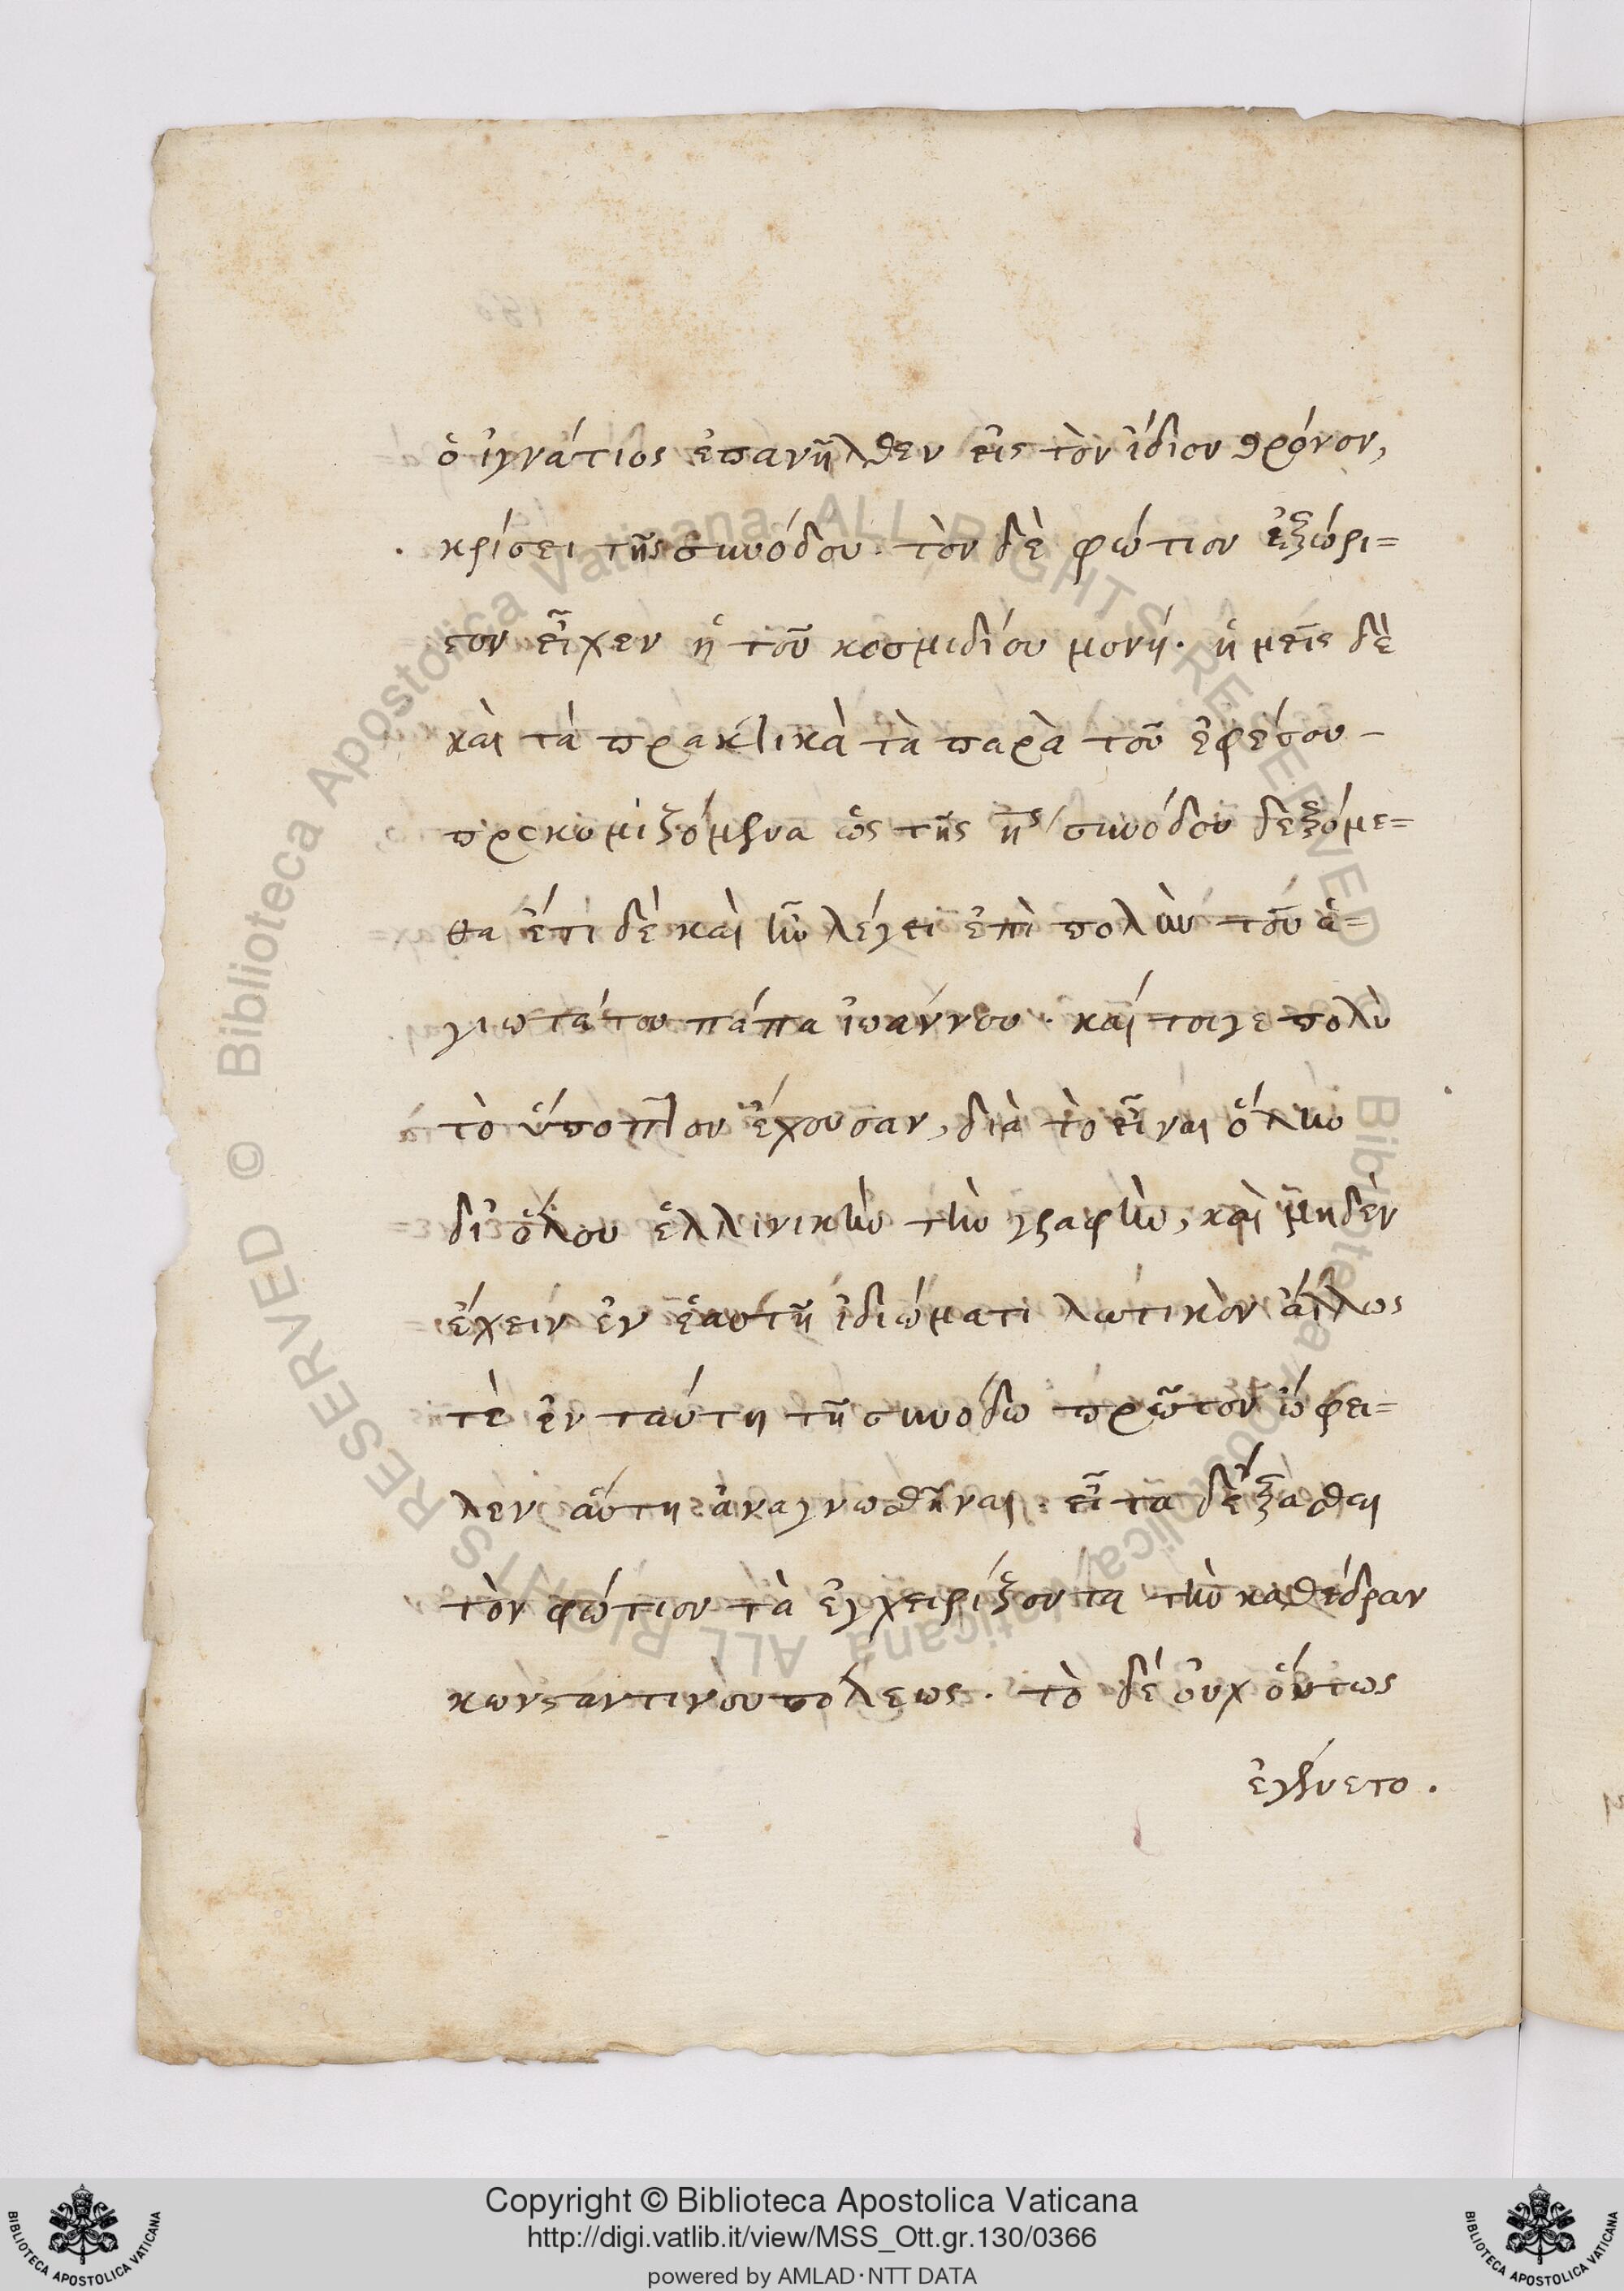 ὁ ἰγνάτιος ἐπανῆλθεν εἰς τὸν ἴδιον θρόνον,
κρίσει τῆς συνόδου· τὸν δὲ φώτιον ἐξώρι=
στον εἶχεν ἡ τοῦ κοσμιδίου μονή· ἡμεῖς δὲ
καὶ τὰ πρακτικὰ τὰ παρὰ τοῦ ἐφέσου –
προκομιζόμενα ὡς τῆς ης συνόδου δεξόμε=
θα ἔτι δὲ καὶ ἣν λέγει ἐπιστολὴν τοῦ ἁ=
γιωτάτου πάπα ἰωάννου· καίτοιγε πολὺ
τὸ ὕποπτον ἔχουσαν, διὰ τὸ εἶναι ὅλην
δι' ὅλου ἑλλινικὴν τὴν γραφὴν, καὶ μηδὲν
ἔχειν ἐν ἑαυτῇ ἰδιώματι λατικὸν ἄλλως
τὲ ἐν ταύτῃ τῇ συνόδω πρῶτον ὤφει=
λεν αὕτη ἀναγνωσθῆναι· εἶτα δέξασθαι
τὸν φώτιον τὰ ἐγχειρίζοντα τὴν καθέδραν
κωνσταντινουπόλεως· τὸ δὲ οὐχ οὕτως
ἐγένετο.
© Biblioteca Apostolica Vaticana ALL RIGHTS RESERVED
© Biblioteca Apostolica Vaticana ALL RIGHTS RESERVED
Copyright © Biblioteca Apostolica Vaticana
http://digi.vatlib.it/view/MSS_Ott.gr.130/0366
powered by AMLAD·NTT DATA
BIBLIOTECA APOSTOLICA VATICANA
BIBLIOTECA APOSTOLICA VATICANA